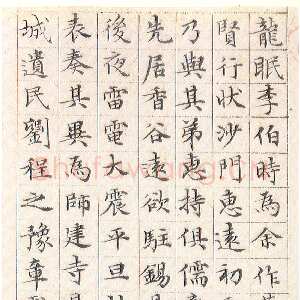 龍眠李伯時為余作
賢行狀沙門惠遠初
乃與其弟惠持俱儒
先居香谷遠欲駐錫
後夜雷電大震平旦
表奏其異為師建寺
城遺民劉程之豫章